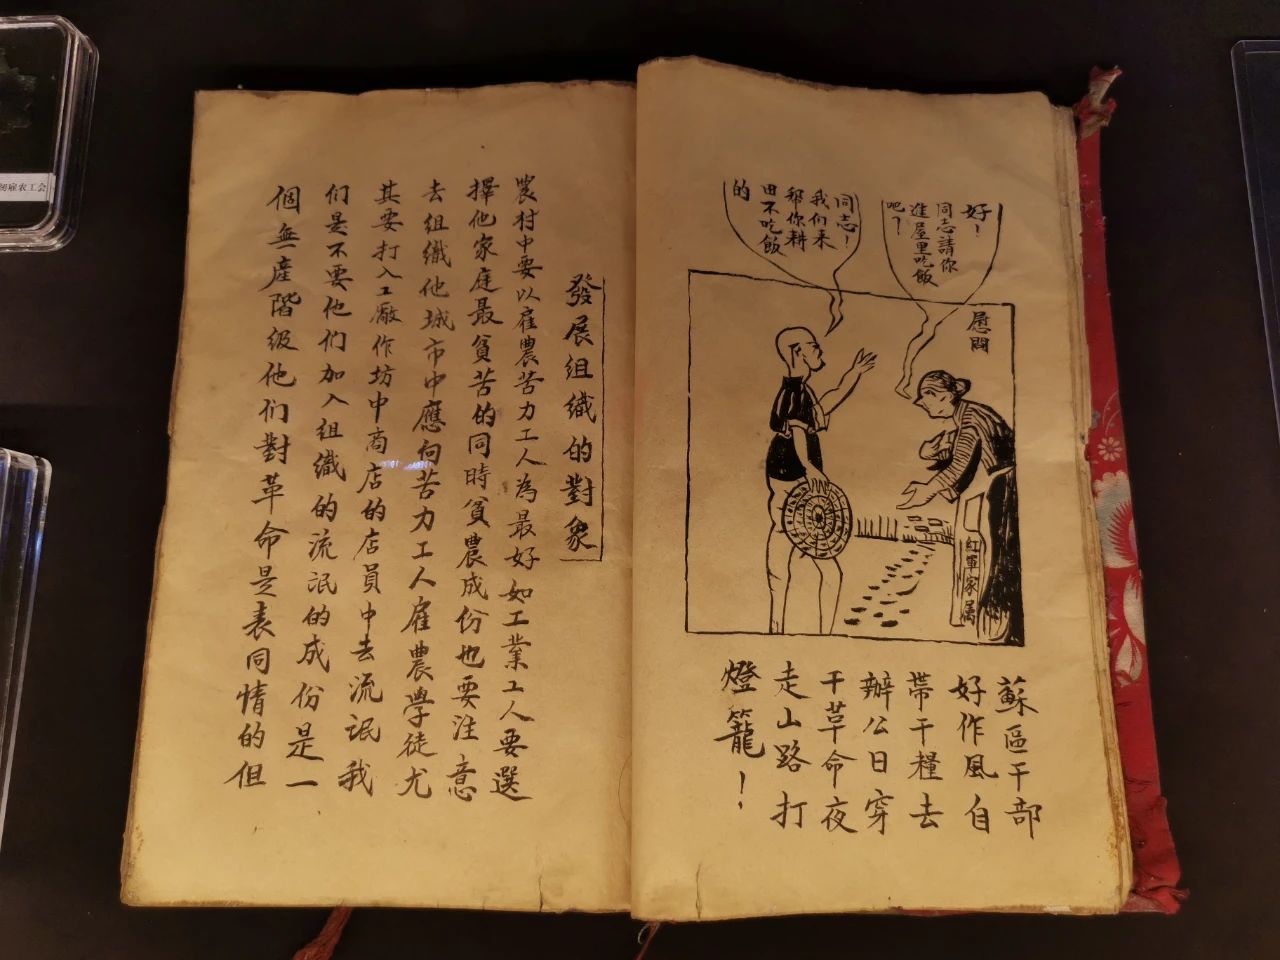 好！
同志請你
進屋里吃飯
吧？
同志！
我们来
帮你耕
田不吃飯
的
慰問
紅軍家属
蘇區干部
好作風自
帶干糧去
辦公日穿
干草命夜
走山路打
燈籠！
發展組織的對象
農村中要以雇農苦力工人為最好如工業工人要選
擇他家庭最貧苦的同時貧農成份也要注意
去組織他城市中應向苦力工人雇農學徒尤
其要打入工廠作坊中商店的店員中去流氓我
们是不要他们加入組織的流氓的成份是一
個無產階級他们對革命是表同情的但
雇农工会